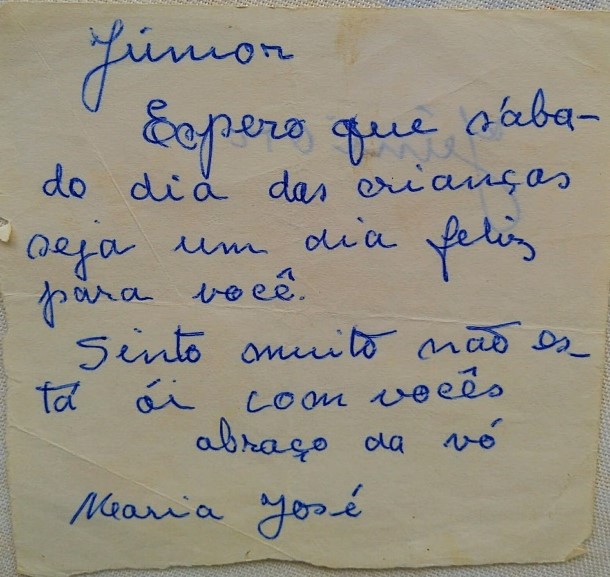 Júnior
Espero que sába-
do dia das crianças
seja um dia feliz
para você.
Sinto muito não es-
tá ói com vocês
abraço da vó
Maria José